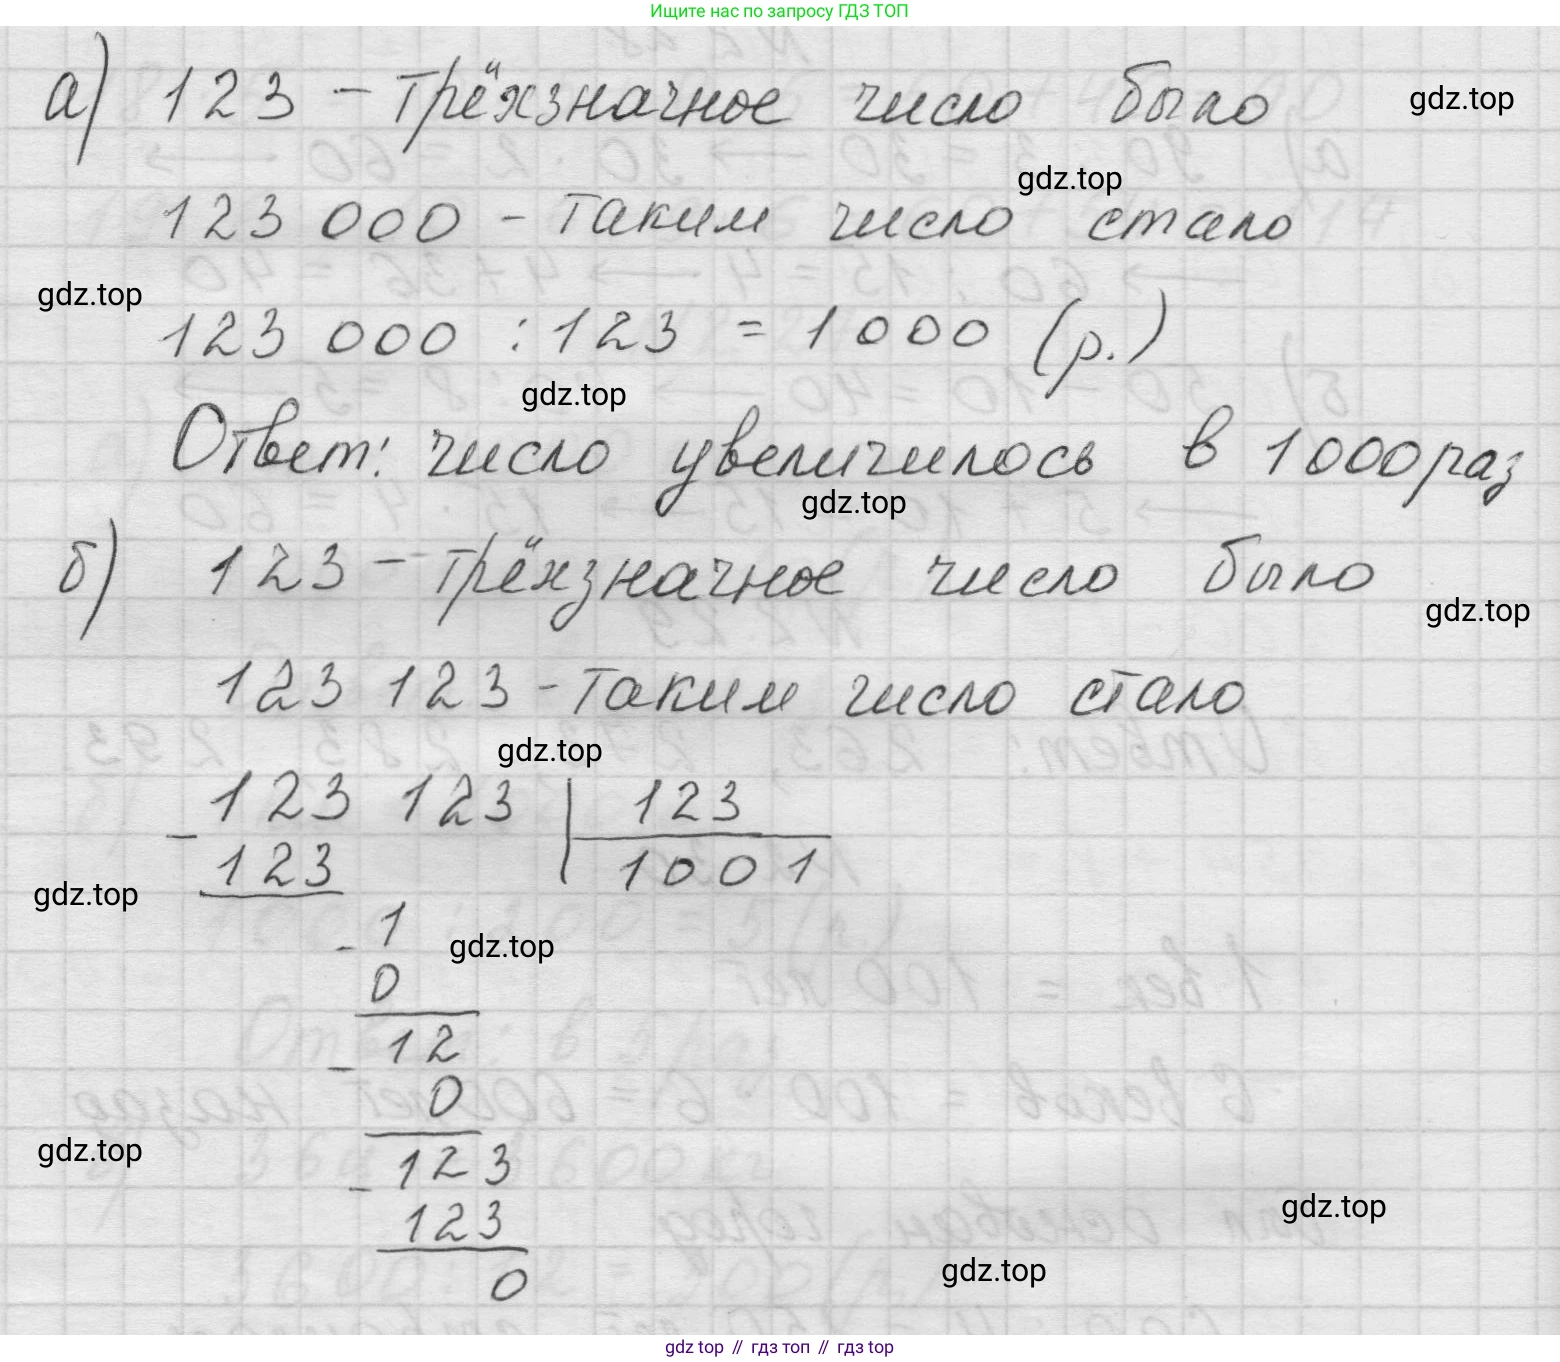 Ищите нас по запросу ГДЗ ТОП
а) 123 – трёхзначное число было
gdz.top
gdz.top
123 000 - таким число стало
gdz.top
123 000 : 123 = 1 000 (р.)
gdz.top
Ответ: число увеличилось в 1 000 раз
gdz.top
б) 123 – трёхзначное число было
gdz.top
123 123 - таким число стало
gdz.top
123 123 | 123
- 123 1001
gdz.top
- 1
gdz.top
0
- 12
0
gdz.top
- 123
gdz.top
123
gdz.top
0
gdz top // гдз топ // гдз top